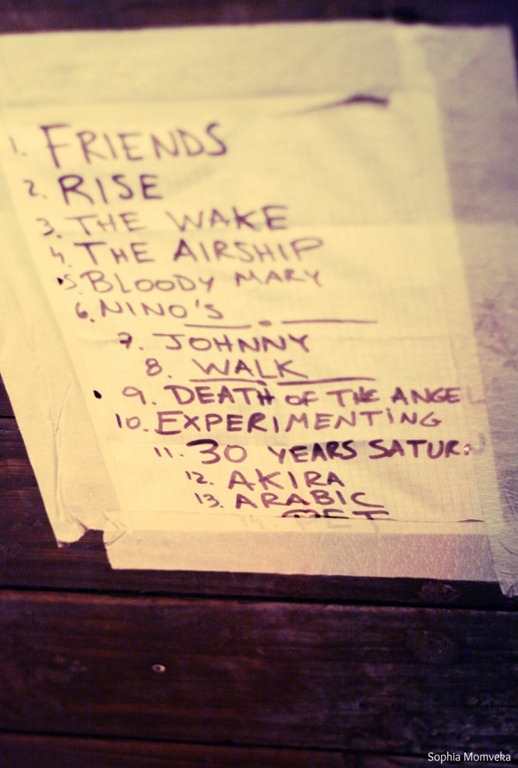 1. FRIENDS
2. RISE
3. THE WAKE
4. THE AIRSHIP
5. BLOODY MARY
6. NINO'S
7. JOHNNY
8. WALK
9. DEATH OF THE ANGEL
10. EXPERIMENTING
11. 30 YEARS SATUR
12. AKIRA
13. ARABIC
Sophia Momveka